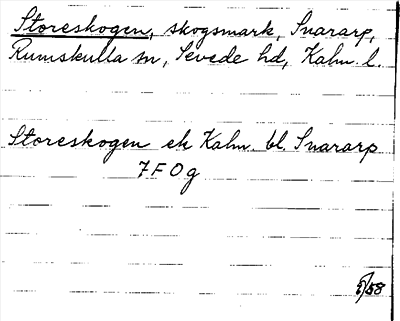 Storeskogen, skogsmark, Snararp,
Rumskulla sn, Sevede hd, Kalm. l.
Storeskogen ek Kalm. bl. Snararp
7F0g
/58